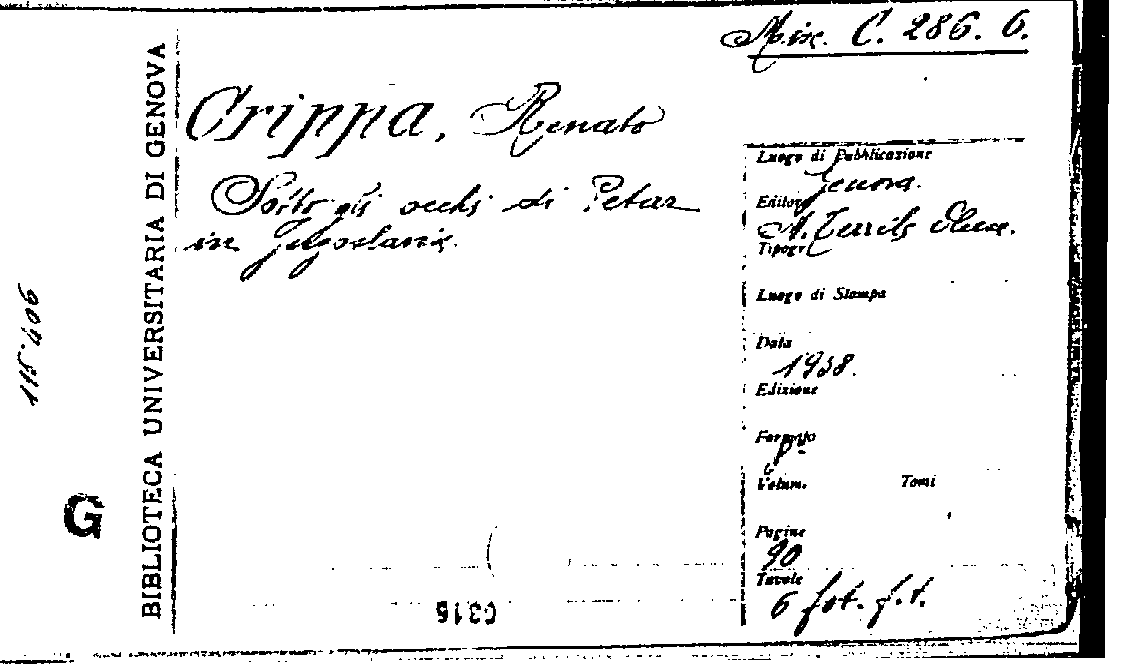 Misc. C. 286. 6.
Crippa, Renato
Sotto gli occhi di Petar
in Jugoslavia.
Luogo di Pubblicazione
Genova.
Editore
Tipogr.
Luogo di Stampa
Data
1938.
Edizione
Formato
8º
Volum. Tomi
Pagine
90
Tavole
6 fot. f.t.
BIBLIOTECA UNIVERSITARIA DI GENOVA
G